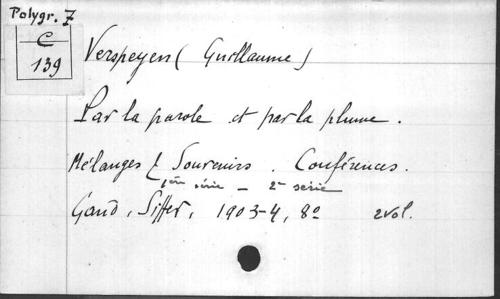 Polygr. Z
C
139
Verspeyen (Guillaume)
Par la parole et par la plume.
Mélanges & Souvenirs. Conférences.
1ère série — 2e série
Gand, Siffer, 1903-4, 8o 2 vol.